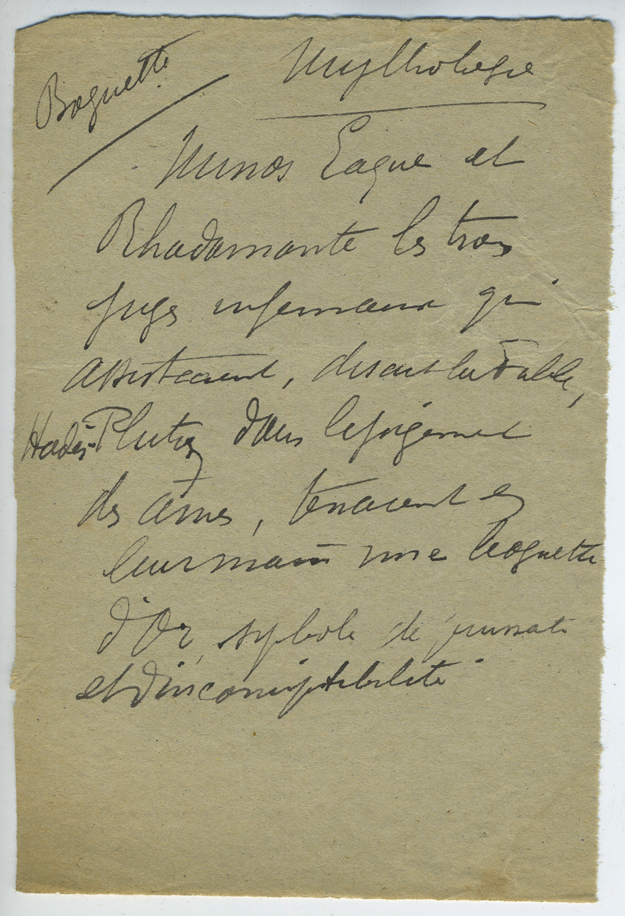 Baguette
Mythologie
Minos Eaque et
Rhadamante les trois
juges infernaux qui
assistaient, disait la Fable,
Hadès-Pluton dans le jugement
des âmes, tenaient en
leur main une baguette
d'Or, symbole de
et d'incorruptibilité